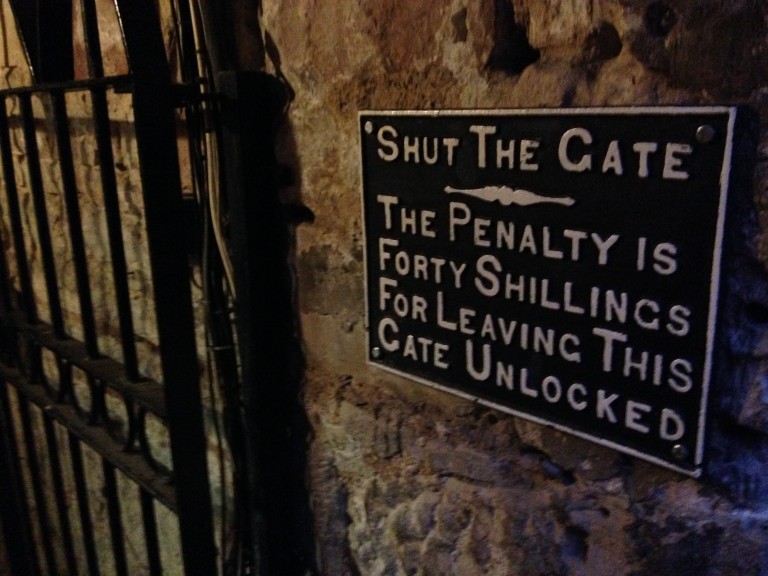 SHUT THE GATE
THE PENALTY IS
FORTY SHILLINGS
FOR LEAVING THIS
GATE UNLOCKED